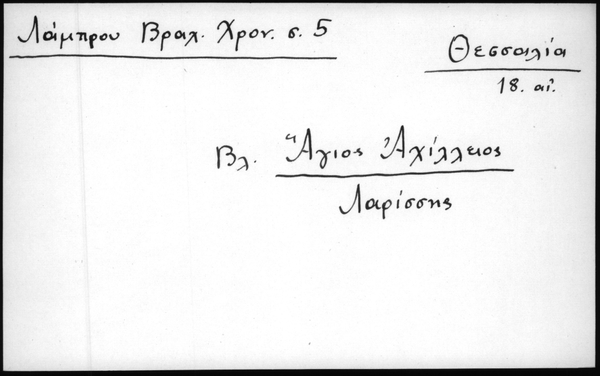 Λάμπρου Βραχ. Χρον. σ. 5
Θεσσαλία
18. αἰ.
Βλ. Ἅγιος Ἀχίλλειος
Λαρίσσης